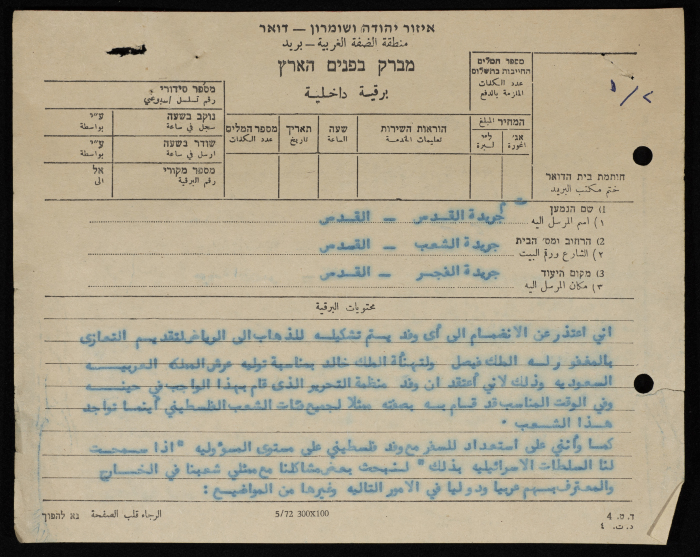 איזור יהודה ושומרון — דואר
منطقة الضفة الغربية — بريد
מברק בפנים הארץ
برقية داخلية
מספר המלים
החייבות בתשלום
عدد الكلمات
الملزمة بالدفع
המחיר المبلغ
אג׳ ל״י
اجورة ليرة
הוראות השירות
تعليمات الخدمة
שעה
الساعة
תאריך
تاريخ
מספר המלים
عدد الكلمات
מספר סידורי
رقم تسلسل
נוקב בשעה ע״י
سجل في ساعة بواسطة
שודר בשעה ע״י
ارسل في ساعة بواسطة
מספר מקורי אל
رقم البرقية الى
חותמת בית הדואר
ختم مكتب البريد
1) שם הנמען
١) اسم المرسل اليه
جريدة القدس — القدس
2) הרחוב ומס׳ הבית
٢) الشارع ورقم البيت
جريدة الشعب — القدس
3) מקום היעוד
٣) مكان المرسل اليه
جريدة الفجر — القدس
محتويات البرقية
اني اعتذر عن الانضمام الى أى وفد يستم تشكيلسه للذهاب الى الرياض لتقديم التعازى
بالمغفور لسه الملك فيصل ولتهنأة الملك خالد بمناسبة توليه عرش المملكه العربيسه
السعوديه وذلك لاني أعتقد ان وفد منظمة التحرير الذى قام بهذا الواجب في حينسه
وفي الوقت المناسب قد قسام بسه بصفته ممثلا لجميع فئات الشعب الفلسطيني أينما تواجد
هذا الشعب •
كما وأنني على استعداد للسفر مع وفد فلسطيني على مستوى المسؤوليه "اذا سمحت
لنا السلطات الاسرائيليه بذلك" لنبحث بعض مشاكلنا مع ممثلي شعبنا في الخسارج
والمعترف بهم عربيا ودوليا في الامور التاليه وغيرها من المواضيع :
ד.ט. 4
د.ت. ٤
5/72 300X100
الرجاء قلب الصفحة נא להפוך